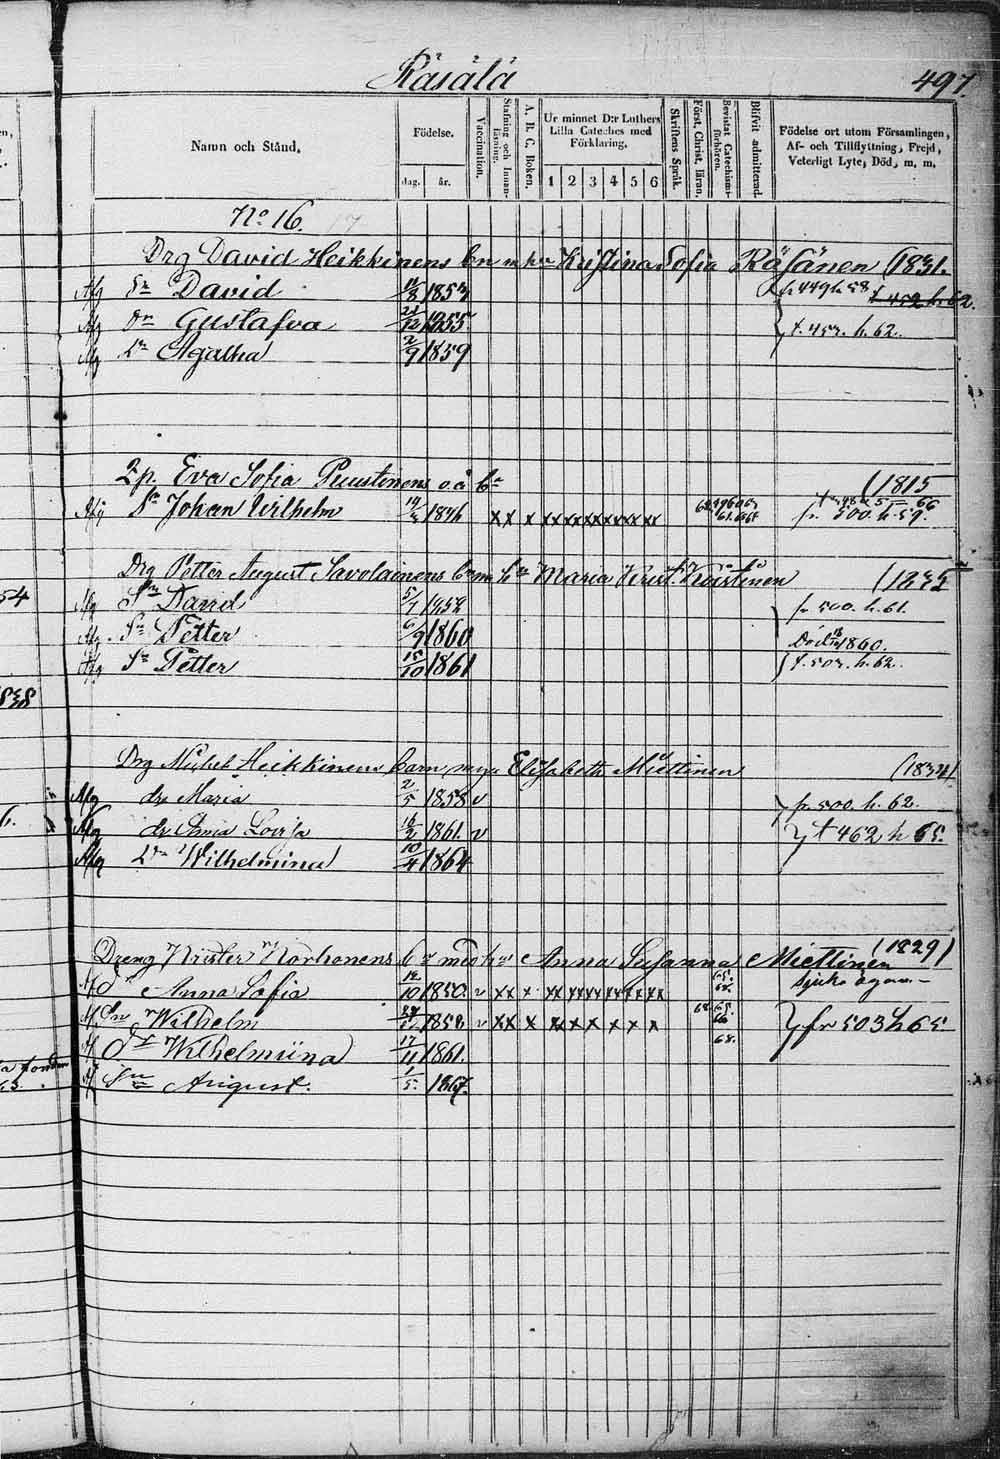 Räsälä
497.
Namn och Stånd.
Födelse.
dag. år.
Vaccination.
Stafning och Innanläsning.
A. B. C. Boken.
Ur minnet D:r Luthers Lilla Cateches med Förklaring.
1 2 3 4 5 6
Skriftens Språk.
Först. Christ. läran.
Bevistat Catechismi-förhören.
Blifvit admitterad.
Födelse ort utom Församlingen,
Af- och Tillflyttning, Frejd,
Veterligt Lyte, Död, m. m.
No 16.
Drg David Heikkinens bn m hu Kristina Sofia Räsänen (1831.
Afg Sn David 11/8 1853 fr 449 h. 58 t 452 h. 62.
Afg Dr Gustafva 24/12 1855 t. 453. h. 62.
Afg Dr Agatha 2/9 1859
Eva Sofia Puustinens o. ä. bn (1815
Afg Sn Johan Wilhelm 1846 x x x xx xx xx xx xx xx fr. 500. h. 59.
Drg Petter August Savolainens bn m hu Maria Krist. (1835
54
Afg Sn David 5/7 1858 fr 500. h. 61.
Afg Sn Petter 6/9 1860 Död 1860.
Afg Sn Petter 15/10 1861 t. 503. h. 62.
838
Drg Mickel Heikkinens barn m hu Elisabeth Miettinen (1834)
Afg dr Maria 2/5 1858 v fr. 500. h. 62.
Afg dr Anna Lovisa 16/2 1861. v t 462 h 65.
Afg Dr Wilhelmina 10/4 1864
Dreng Krister Korhonens bn med hu Anna Susanna Miettinen (1829)
Af Dr Anna Sofia 12/10 1850 v xx x xx xx xx xx xx xx 65. 68. sjuka ögon
Af Sn Wilhelm 1858 v xx x xx x x x x x 68. 65. 66. fr 503 h 65.
Af Dr Wilhelmina 17/11 1861. 68.
Af Sn August. 1/5 1867.